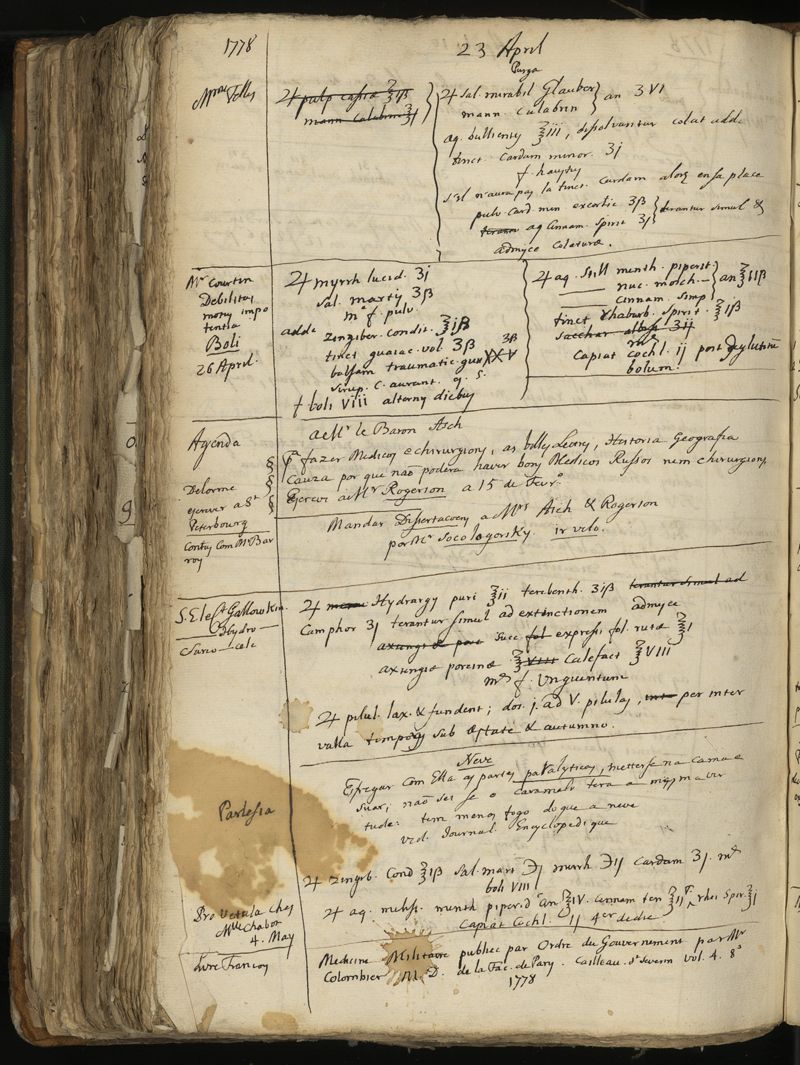 1778
23 April
Purga
Mme Vellis
♃ pulp cassia ℥iβ
mann Calabrin ℥j
♃ Sal. mirabil Glauber
mann. Calabrin } an ʒ VI
aq. bullientis ℥iii, dissolvantur colat adde
tinct. Cardam minor. ʒj
f. haustus
S'il n'aura pas la tinct. Cardam alors en sa place
pulv. Card. min excortic ʒβ
aq Cinnam. Spirit ʒj } terantur simul &
admisce Colaturæ.
Mr Courtin
Debilitas
impo
tentia
Boli
26 April.
♃ myrrh lucid. ʒj
Sal. martis ʒβ
m.e f. pulv.
adde Zingiber. Condit. ℥jβ
tinct guaiac. vol. ʒβ
balsam traumatic. gutt XXV
Sirup. C. aurant. q. S.
f boli Viii alternis diebus
♃ aq. Still menth. piperit
—— nuc. mosch. —
—— Cinnam simp } an ℥iiβ
tinct Rhabarb. Spirit. ℥iβ
Sacchar albiss ʒij
me
Capiat Cochl. ij post deglutitum
bolum.
Agenda
a Mr le Baron Asch
fazer Medicos e chirurgions, as belles Letres, Historia Geografia
Cauza por que naõ podera haver bons Medicos Russos nem chirurgions,
Escrever a Mr Rogerson a 15 de Fevr.o
Delorme
escrever a St
Peterbourg
Mandar Dissertacoens a Mrs Asch & Rogerson
por Mr Socologorsky ir velo.
Contas Com Mr Bar
roy
S. E le Ct Gallowkin
Hydro
Sarco - cele
♃ Hydrargy puri ℥ii terebenth. ʒiβ terantur simul ad
Camphor ʒj terantur simul ad extinctionem admisce
axungiæ porc Succ. fol expressi fol. rutæ ℥I
axungiæ porcinæ ℥VIII Calefact ℥VIII
me f. Unguentum
♃ pilul. lax. & fundent; dos. j. ad V. pilulas, per inter
valla temporis sub Estate & autumno.
Neve
Parlesia
Esfregar Com Ella as partes paralyticas, metterse na Cama e
suar; naõ sei se o Caramelo tera a mesma vir
tude: tem menos fogo do que a neve
vid. Journal Encyclopedique
♃ Zingib. Cond ℥iβ Sal. mart ℈j mirrh ℈ij Cardam ʒj. me
boli VIII
Pro Vetula Ches
Mlle Chabot
4. May
♃ aq. meliss. menth piper. an ℥IV. Cinnam ten ℥ij rhei Spir. ℥j
Capiat Cochl. ij 4er de die
Livre Francoy
Medecine Militaire publiee par Ordre du Gouvernement par Mr
Colombier M. D. de la Fac. de Parys. Cailleau. St Severin vol. 4. 8o
1778